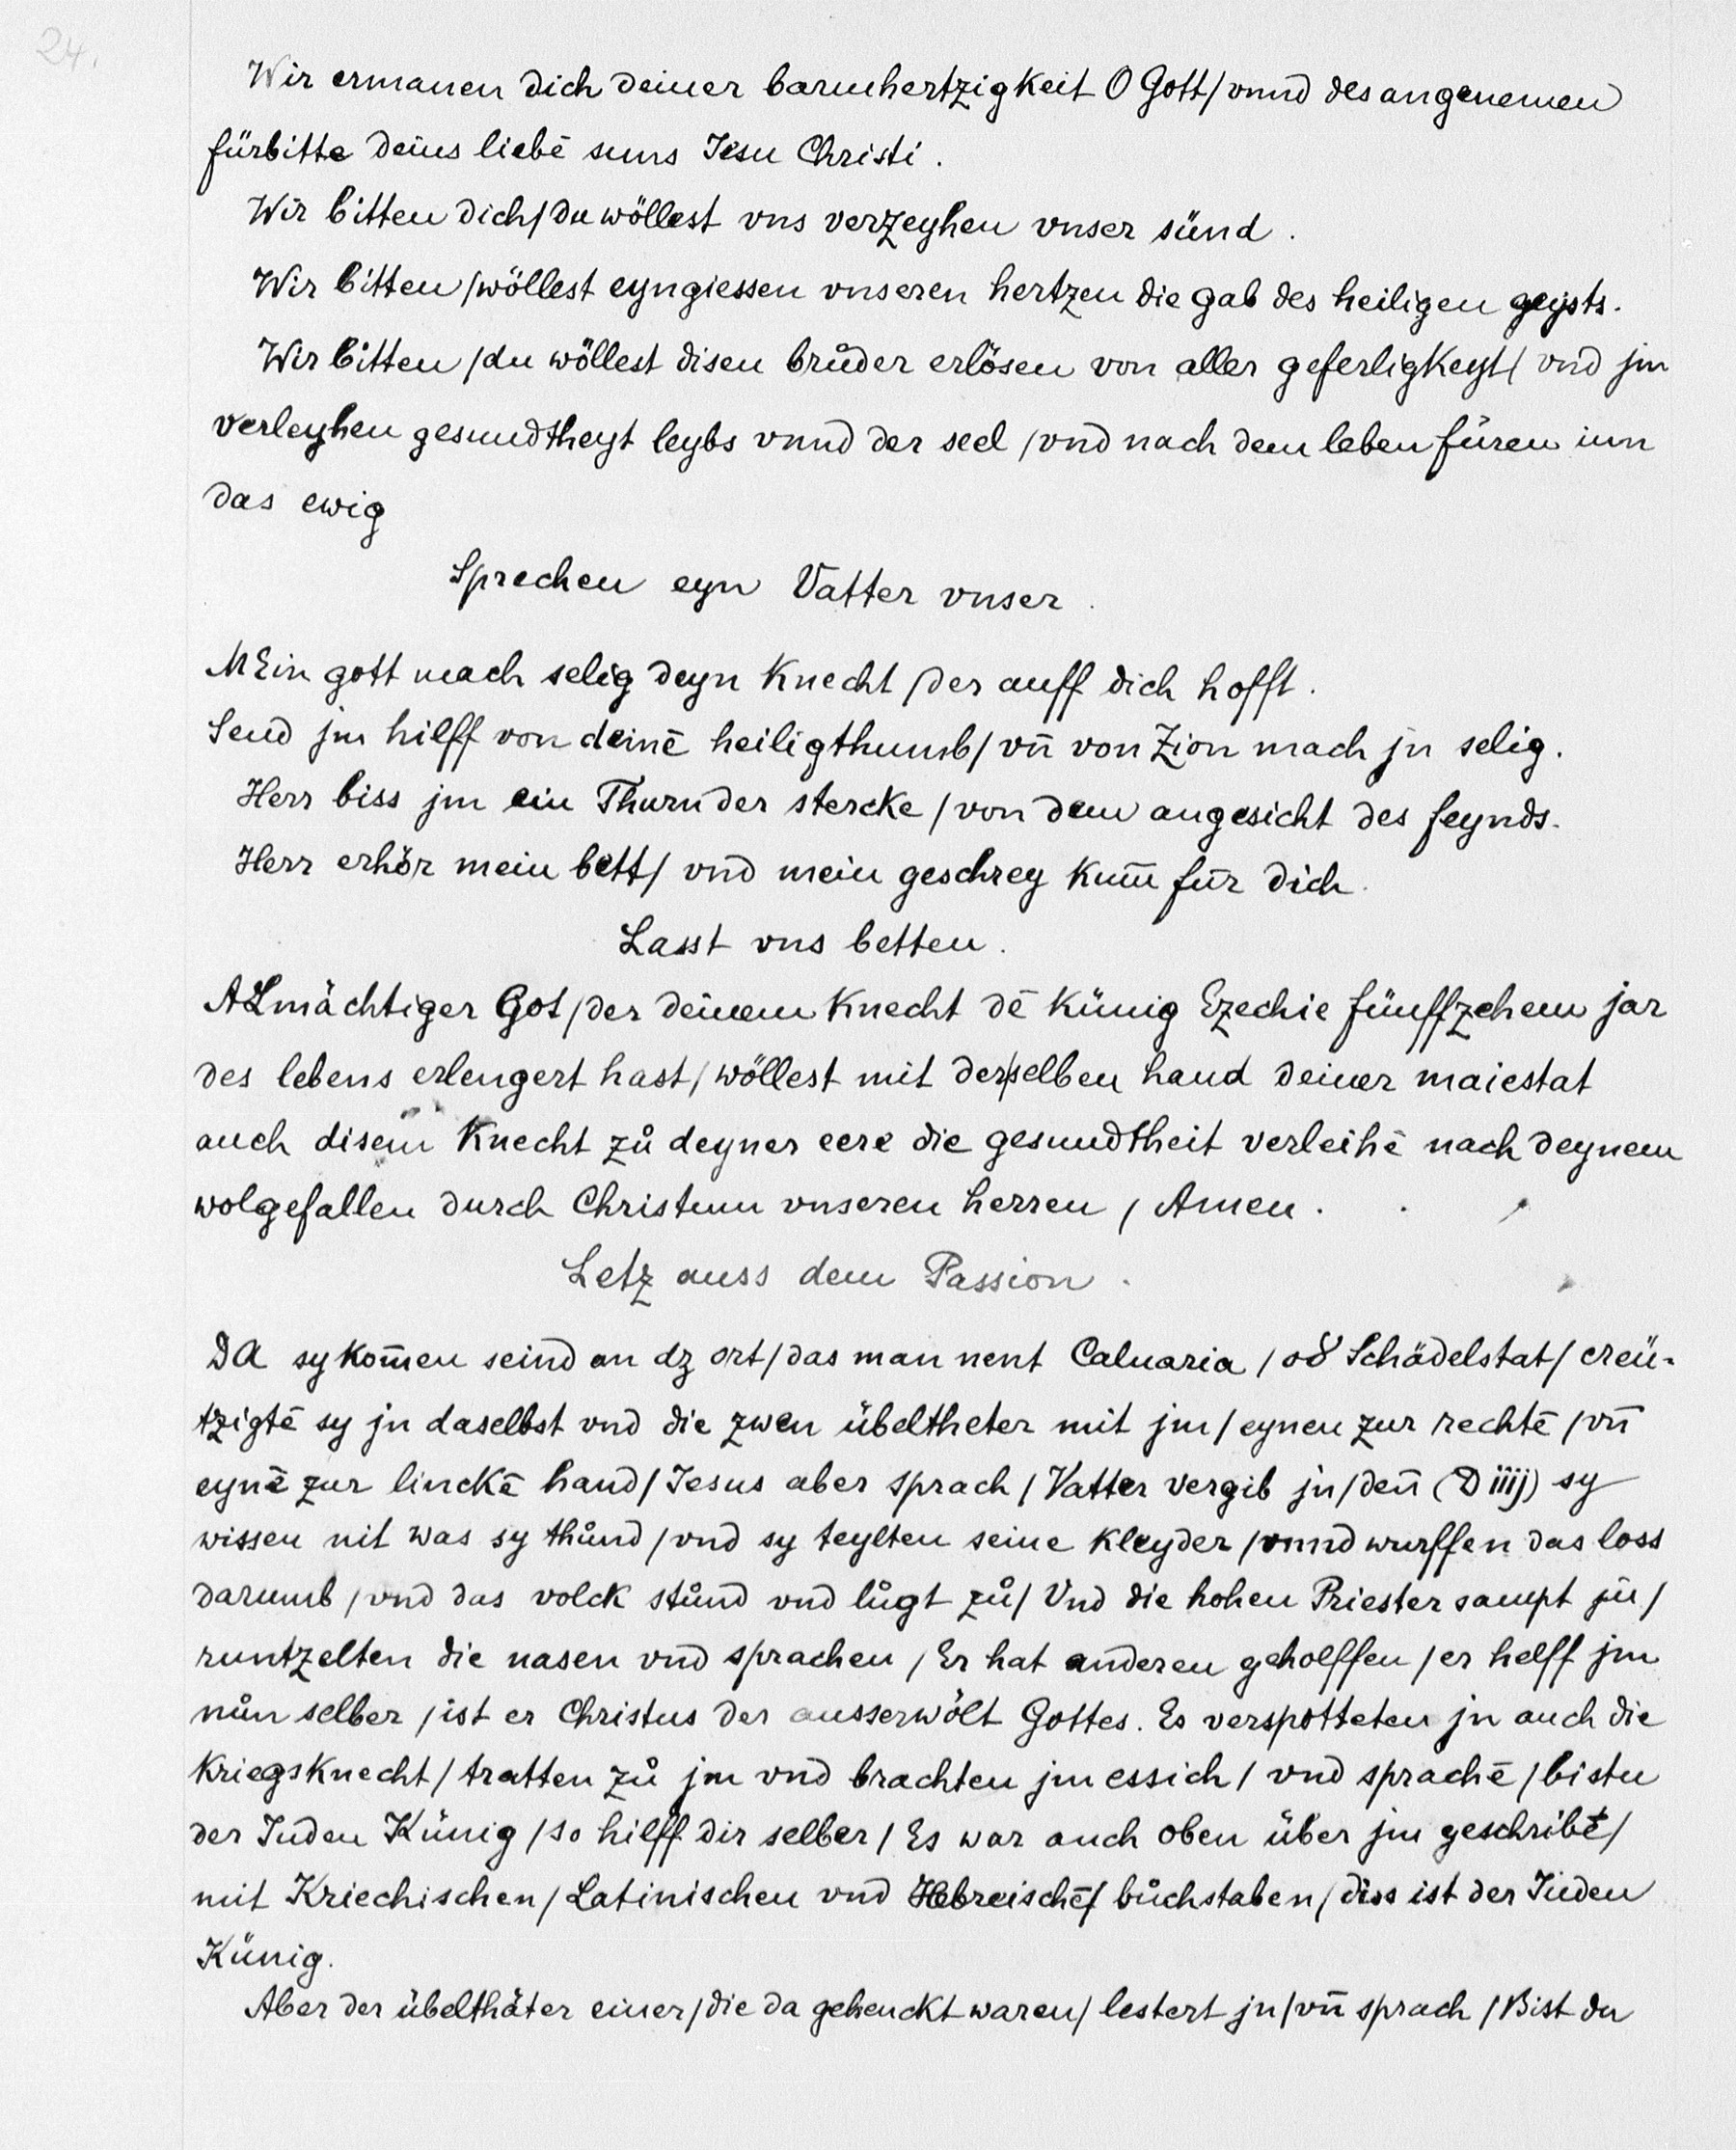 24.
Wir ermanen dich deiner barmhertzigkeit O Gott/vnnd des angenemen
fürbitte deins liebē suns Jesu Christi.
Wir bitten dich/du wöllest vns verzeyhen vnser sünd.
Wir bitten/wöllest eyngiessen vnseren hertzen die gab des heiligen geysts.
Wir bitten/du wöllest disen brůder erlösen von aller geferligkeyt/vnd jm
verleyhen gesundtheyt leybs vnnd der seel/vnd nach dem leben füren inn
das ewig
Sprechen eyn Vatter vnser.
MEin gott mach selig deyn knecht/der auff dich hofft.
Send jm hilff von deinē heiligthumb/vn̄ von Zion mach jn selig.
Herr biss jm ein Thurn der stercke/von dem angesicht des feynds.
Herr erhör mein bett/vnd mein geschrey kum̄ für dich.
Lasst vns betten.
ALmächtiger Got/der deinem knecht dē Künig Ezechie fünffzehen jar
des lebens erlengert hast/wöllest mit derselben hand deiner maiestat
auch disem knecht zů deyner eere die gesundtheit verleihē nach deynem
wolgefallen durch Christum vnseren herren/Amen.
Letz auss dem Passion.
DA sy kom̄en seind an dz ort/das man nent Caluaria/oð Schädelstat/creü-
tzigtē sy jn daselbst vnd die zwen übeltheter mit jm/eynen zur rechtē/vn̄
eynē zur linckē hand/Jesus aber sprach/Vatter vergib jn/den̄ (D iiij) sy
wissen nit was sy thůnd/vnd sy teylten seine kleyder/vnnd wurffen das loss
darumb/vnd das volck stůnd vnd lůgt zů/Vnd die hohen Priester sampt jn/
runtzelten die nasen vnd sprachen/Er hat anderen geholffen/er helff jm
nůn selber/ist er Christus der ausserwölt Gottes. Es verspotteten jn auch die
Kriegsknecht/tratten zů jm vnd brachten jm essich/vnd sprachē/bistu
der Juden Künig/so hilff dir selber/Es war auch oben über jm geschribē/
mit Kriechischen/Latinischen vnd Hebreischē/bůchstaben/diss ist der Juden
Künig.
Aber der übelthäter einer/die da gehenckt waren/lestert jn/vn̄ sprach/Bist du